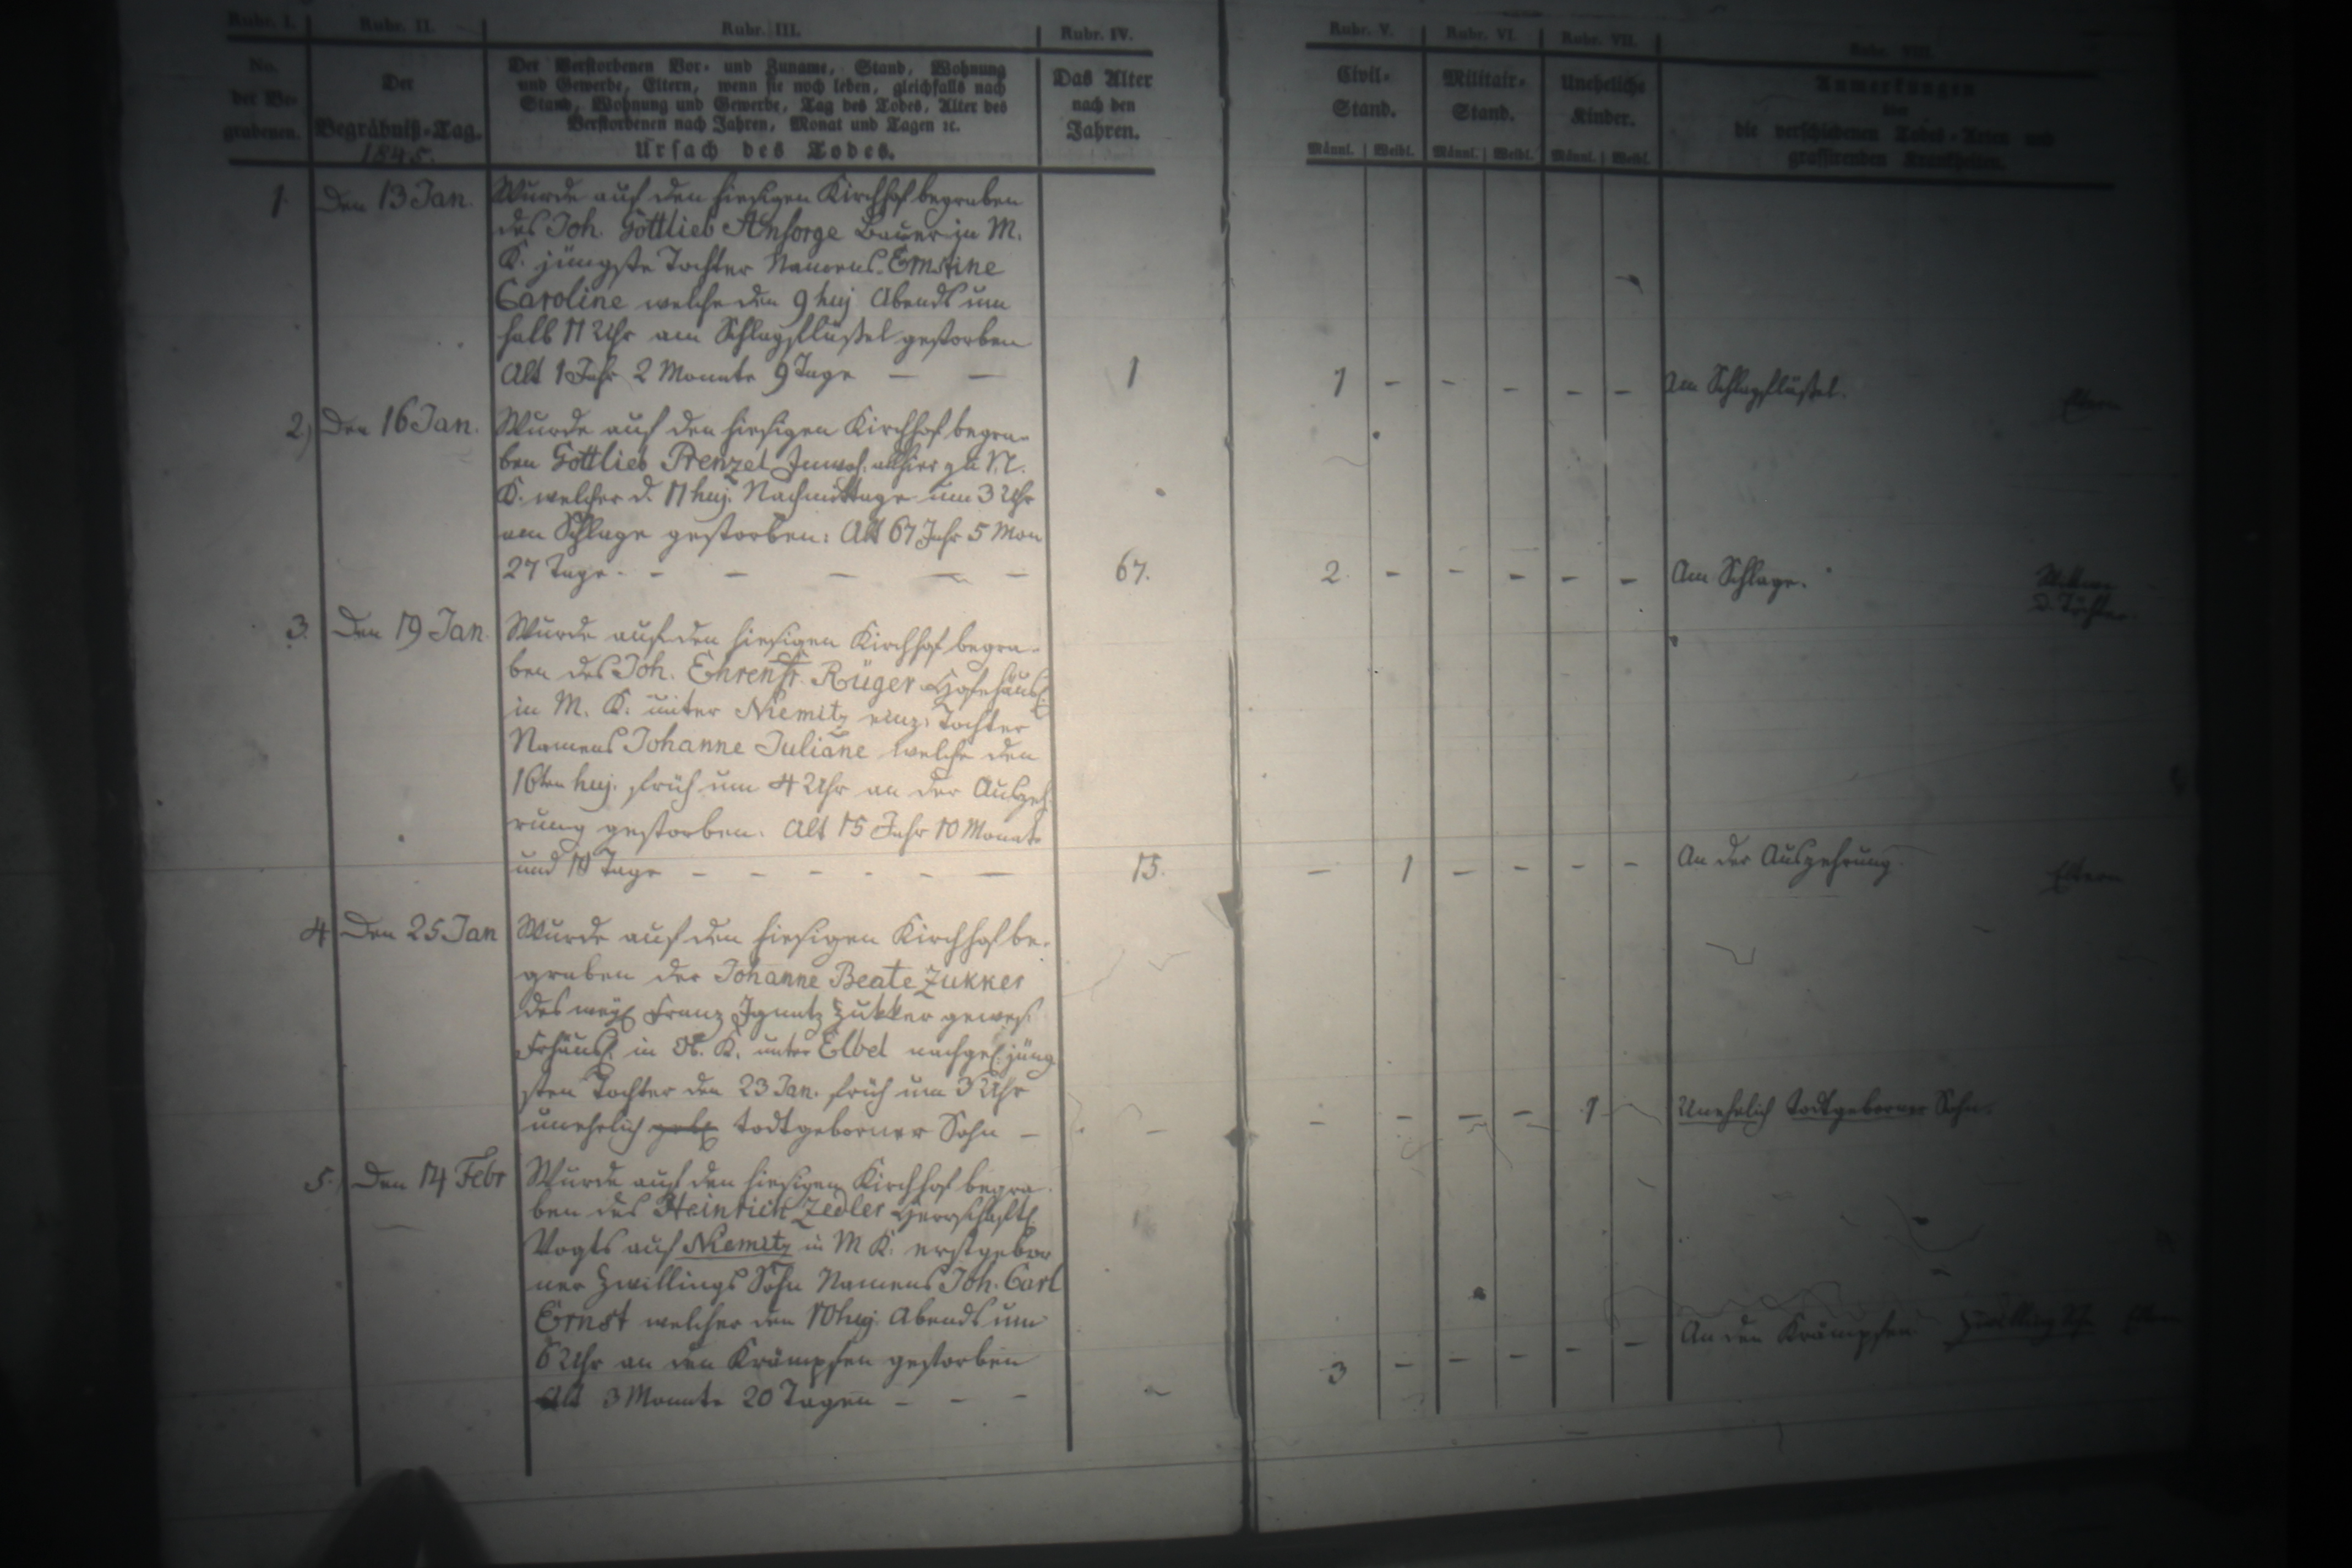 Rubr. I. Rubr. II. Rubr. III. Rubr. IV. Rubr. V. Rubr. VI. Rubr. VII. Rubr. VIII.
No. der Be-grabenen.
Der Begräbniß-Tag. 1845.
Der Verstorbenen Vor- und Zuname, Stand, Wohnung
und Gewerbe, Eltern, wenn sie noch leben, gleichfalls nach
Stand, Wohnung und Gewerbe, Tag des Todes, Alter des
Verstorbenen nach Jahren, Monat und Tagen ꝛc.
Ursach des Todes.
Das Alter
nach den
Jahren.
Civil-
Stand.
Männl. | Weibl.
Militair-
Stand.
Männl. | Weibl.
Uneheliche
Kinder.
Männl. | Weibl.
Anmerkungen
über
die verschiedenen Todes-Arten und
grassirenden Krankheiten.
1. Den 13 Jan. Wurde auf den hiesigen Kirchhof begraben
des Joh. Gottlieb Ansorge Bauer in M.
K. jüngste Tochter Namens Ernstine
Caroline welche den 9 huj Abends um
halb 11 Uhr am Schlagflüßel gestorben
Alt 1 Jahr 2 Monate 9 Tage — — 1 1 - - - - - Am Schlagflüßel. Eltern
2) Den 16 Jan. Wurde auf den hiesigen Kirchhof begra-
ben Gottlieb Prenzel Inwoh. allhier zu N.
K. welcher d. 11 huj. Nachmittage um 3 Uhr
am Schlage gestorben: Alt 67 Jahr 5 Mon
27 Tage - - — — — - 67. 2. - - - - - Am Schlage. Wittwe
2. Töchter.
3. Den 19 Jan. Wurde auf den hiesigen Kirchhof begra-
ben des Joh. Ehrenfr. Rüger Hofehäusl
in M. K. unter Niemitz einz. Tochter
Namens Johanne Juliane welche den
16ten huj. früh um 4 Uhr an der Auszeh-
rung gestorben. Alt 15 Jahr 10 Monate
und Tage - - - - - — 15. — 1 - - - - An der Auszehrung Eltern
4 Den 25 Jan Wurde auf den hiesigen Kirchhof be-
graben der Johanne Beate Zukker
des Franz Ignatz Zukker gewes.
Frhäusl. in Ob. K. unter Elbel nachgel. jüng
sten Tochter den 23 Jan. früh um 3 Uhr
unehelich todtgeborner Sohn — — - - - - 1 - Unehelich todtgeborner Sohn.
5.) Den 14 Febr Wurde auf den hiesigen Kirchhof begra-
ben des Heinrich Zedler Herrschaftl
Vogts auf Niemitz in M K. erstgebor
ner Zwillings Sohn Namens Joh. Carl
Ernst welcher den 10 huj. Abends um
6 Uhr an den Krämpfen gestorben
Alt 3 Monate 20 Tagen - - - - 3 - - - - - An den Krämpfen Eltern